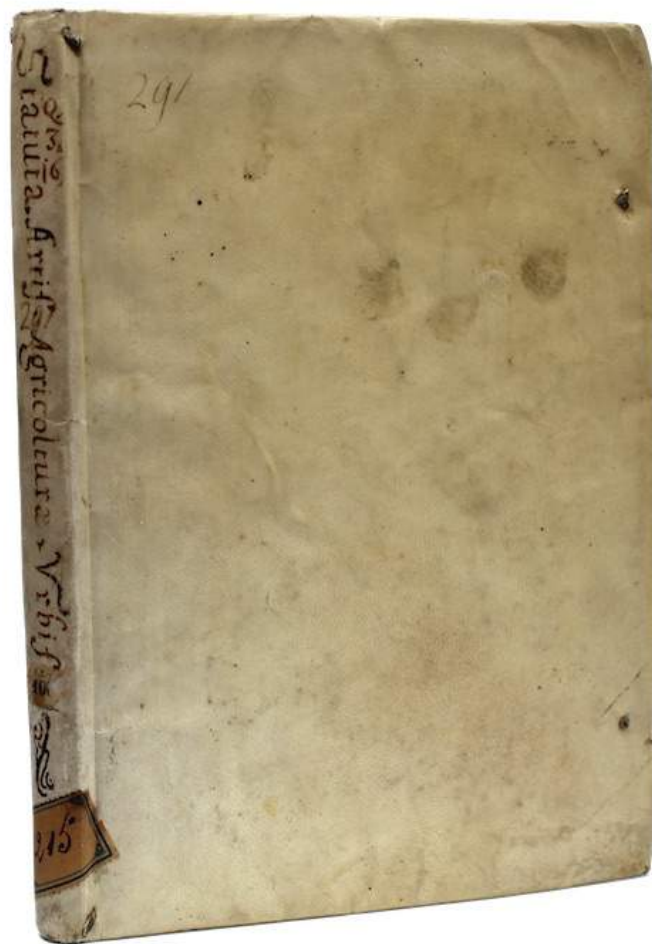 291
Statuta. Artis Agricolturæ, Vrbis
215